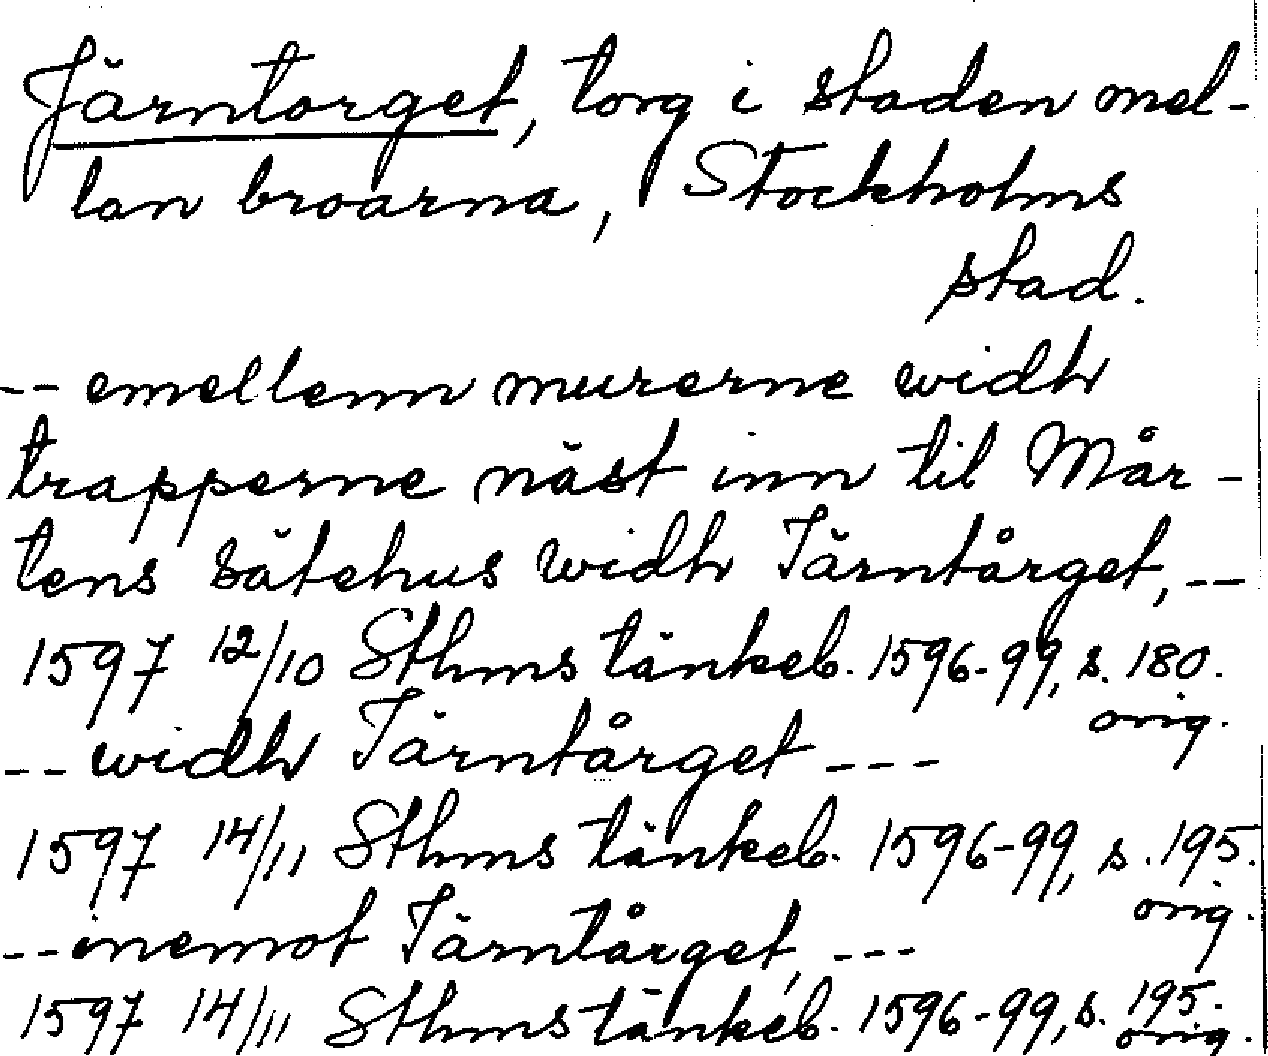 Järntorget, torg i staden mel-
lan broarna, Stockholms
stad.
-- emellenn murerne widh
trapperne näst inn til Mår-
tens sätehus widh Järntårget, --
1597 12/10 Sthms tänkeb. 1596-99, s. 180.
orig.
-- widh Järntårget ---
1597 14/11 Sthms tänkeb. 1596-99, s. 195.
orig.
-- inemot Järntårget, ---
1597 14/11 Sthms tänkeb. 1596-99, s. 195.
orig.